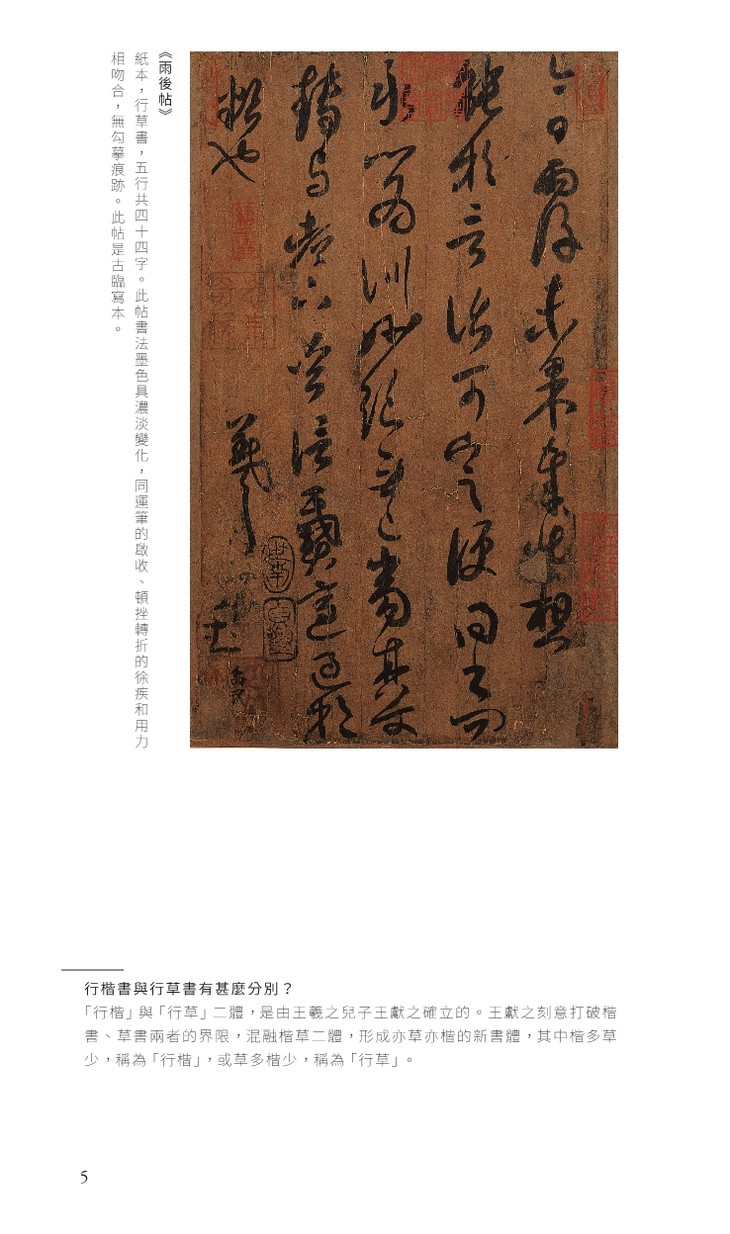 今日雨後未果奉狀想
於言話可定便
永以為訓妙絕無已當其
羲之
《雨後帖》
紙本，行草書，五行共四十四字。此帖書法墨色具濃淡變化，同運筆的啟收、頓挫轉折的徐疾和用力
相吻合，無勾摹痕跡。此帖是古臨寫本。
行楷書與行草書有甚麼分別？
「行楷」與「行草」二體，是由王羲之兒子王獻之確立的。王獻之刻意打破楷
書、草書兩者的界限，混融楷草二體，形成亦草亦楷的新書體，其中楷多草
少，稱為「行楷」，或草多楷少，稱為「行草」。
5